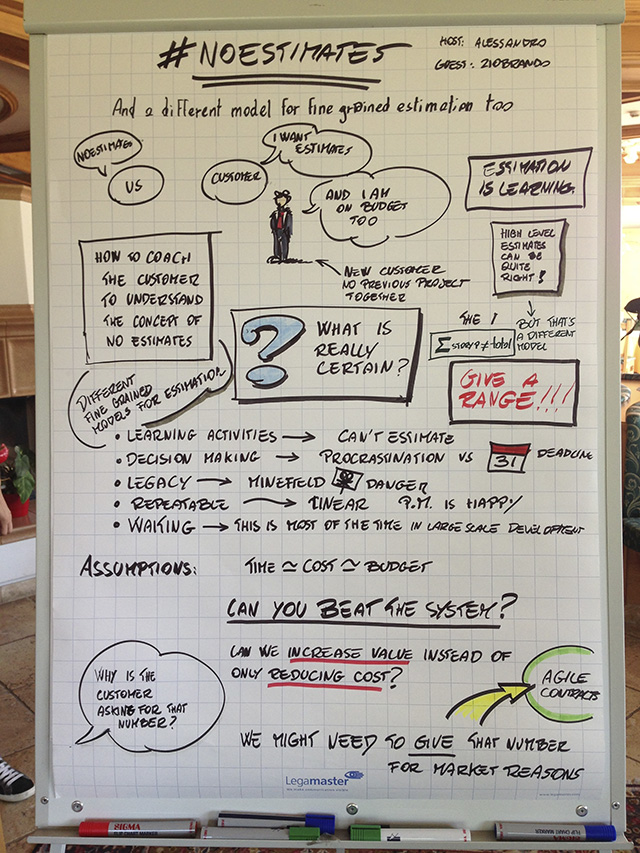 #NOESTIMATES
HOST: ALESSANDRO
GUEST: ZIOBRANDO
And a different model for fine grained estimation too
NOESTIMATES
US
CUSTOMER
I WANT
ESTIMATES
AND I AM
ON BUDGET
TOO
NEW CUSTOMER
NO PREVIOUS PROJECT
TOGETHER
ESTIMATION
IS LEARNING
HIGH LEVEL
ESTIMATES
CAN BE
QUITE
RIGHT!
BUT THAT'S
A DIFFERENT
MODEL
HOW TO COACH
THE CUSTOMER
TO UNDERSTAND
THE CONCEPT OF
NO ESTIMATES
?
WHAT IS
REALLY
CERTAIN?
THE 1
Σ STORYP ≠ total
GIVE A
RANGE!!!
DIFFERENT
FINE GRAINED
MODELS FOR ESTIMATION
• LEARNING ACTIVITIES → CAN'T ESTIMATE
• DECISION MAKING → PROCRASTINATION VS 31 DEADLINE
• LEGACY → MINEFIELD DANGER
• REPEATABLE → LINEAR P.M. IS HAPPY
• WAITING → THIS IS MOST OF THE TIME IN LARGE SCALE DEVELOPMENT
ASSUMPTIONS: TIME ≃ COST ≃ BUDGET
CAN YOU BEAT THE SYSTEM?
CAN WE INCREASE VALUE INSTEAD OF
ONLY REDUCING COST?
WHY IS THE
CUSTOMER
ASKING FOR THAT
NUMBER?
AGILE
CONTRACTS
WE MIGHT NEED TO GIVE THAT NUMBER
FOR MARKET REASONS
Legamaster
SIGMA
FLIP CHART MARKER
FLIP CHART MARKER